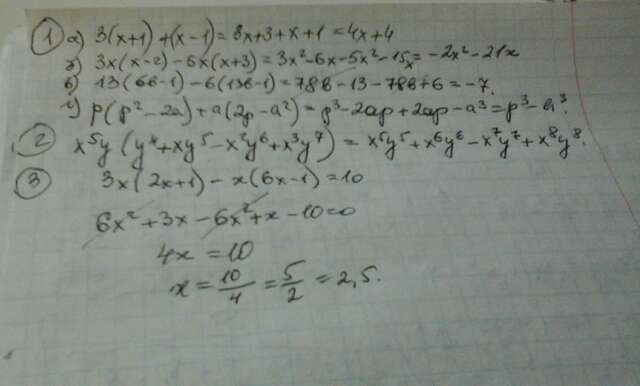 ① а) 3(x+1)+(x-1)=3x+3+x+1=4x+4
б) 3x(x-2)-6x(x+3)=3x²-6x-5x²-15x=-2x²-21x
в) 13(6в-1)-6(13в-1)=78в-13-78в+6=-7.
г) p(p²-2a)+a(2p-a²)=p³-2ap+2ap-a³=p³-a³.
② x⁵y(y⁴+xy⁵-x²y⁶+x³y⁷)=x⁵y⁵+x⁶y⁶-x⁷y⁷+x⁸y⁸.
③ 3x(2x+1)-x(6x-1)=10
6x²+3x-6x²+x-10=0
4x=10
x=10/4=5/2=2,5.